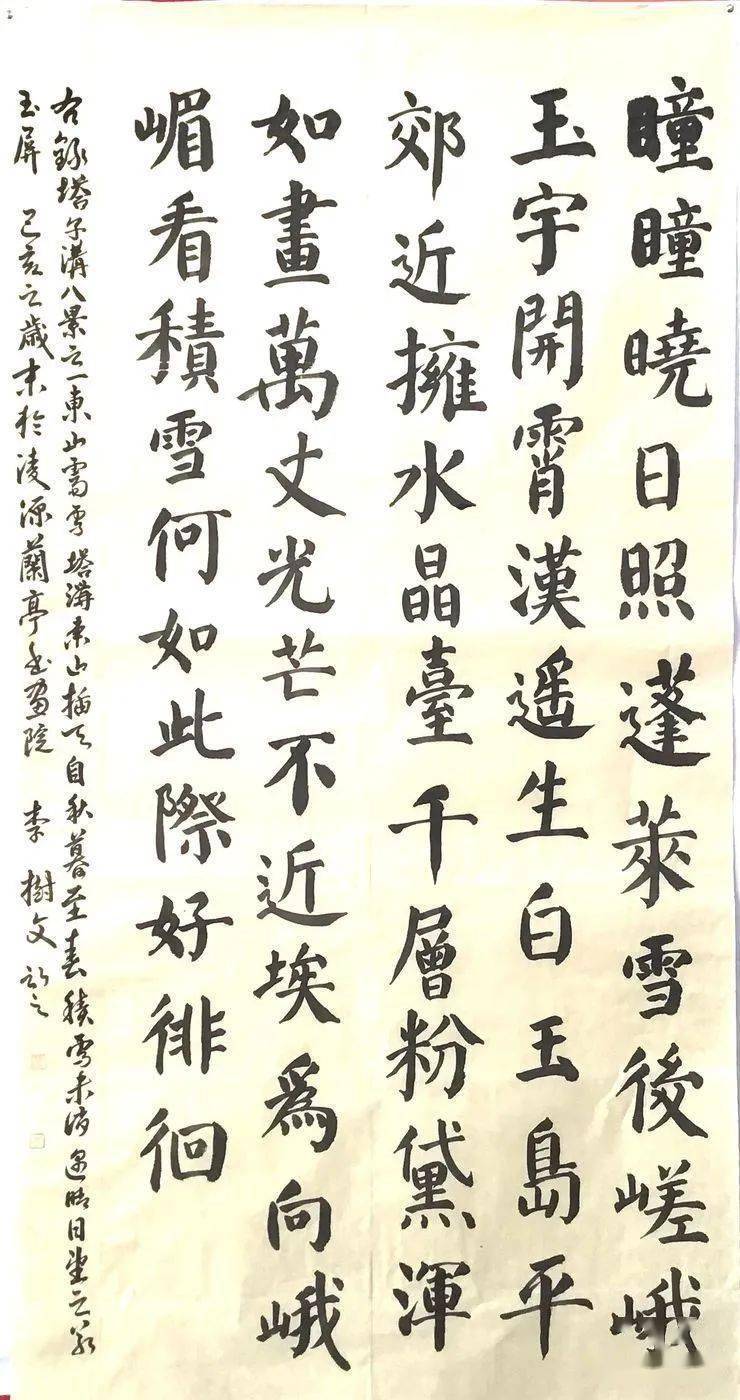 瞳瞳曉日照蓬萊雪後嵯峨
玉宇開霄漢遥生白玉島平
郊近擁水晶臺千層粉黛渾
如畫萬丈光芒不近埃為向峨
嵋看積雪何如此際好徘徊
右錄塔子溝八景之一東山霽雪塔溝東山插天自秋暮至春積雪未消遇晴日望之若
玉屏 己亥之歲末於凌源蘭亭書畫院 李樹文記之